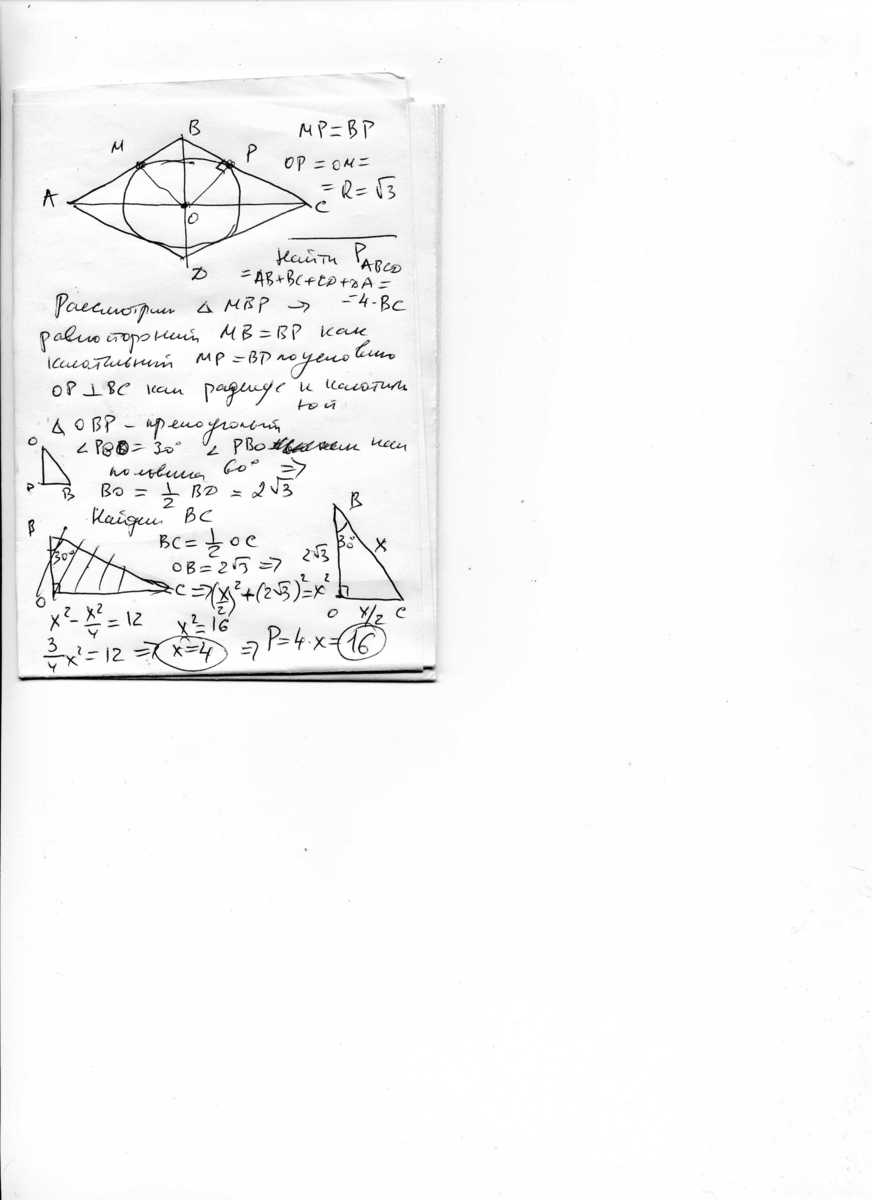 B
M
P
A
O
C
D
MP=BP
OP=OM=
=R=√3
Найти P_ABCD
=AB+BC+CD+DA=
=4·BC
Рассмотрим Δ MBP →
равносторонний MB=BP как
касательный MP=BP по условию
OP⊥BC как радиус к касатель
ной
Δ OBP – прямоугольный
∠POB=30° ∠PBO как
половина 60° ⇒
O
P
B
BO = 1/2 BD = 2√3
Найдем BC
B
30°
O
C
BC=1/2 OC
OB=2√3 ⇒
⇒(x/2)²+(2√3)²=x²
B
2√3
30°
x
O
x/2
C
x²-x²/4=12
x²=16
3/4x²=12 ⇒ x=4 ⇒ P=4·x=16